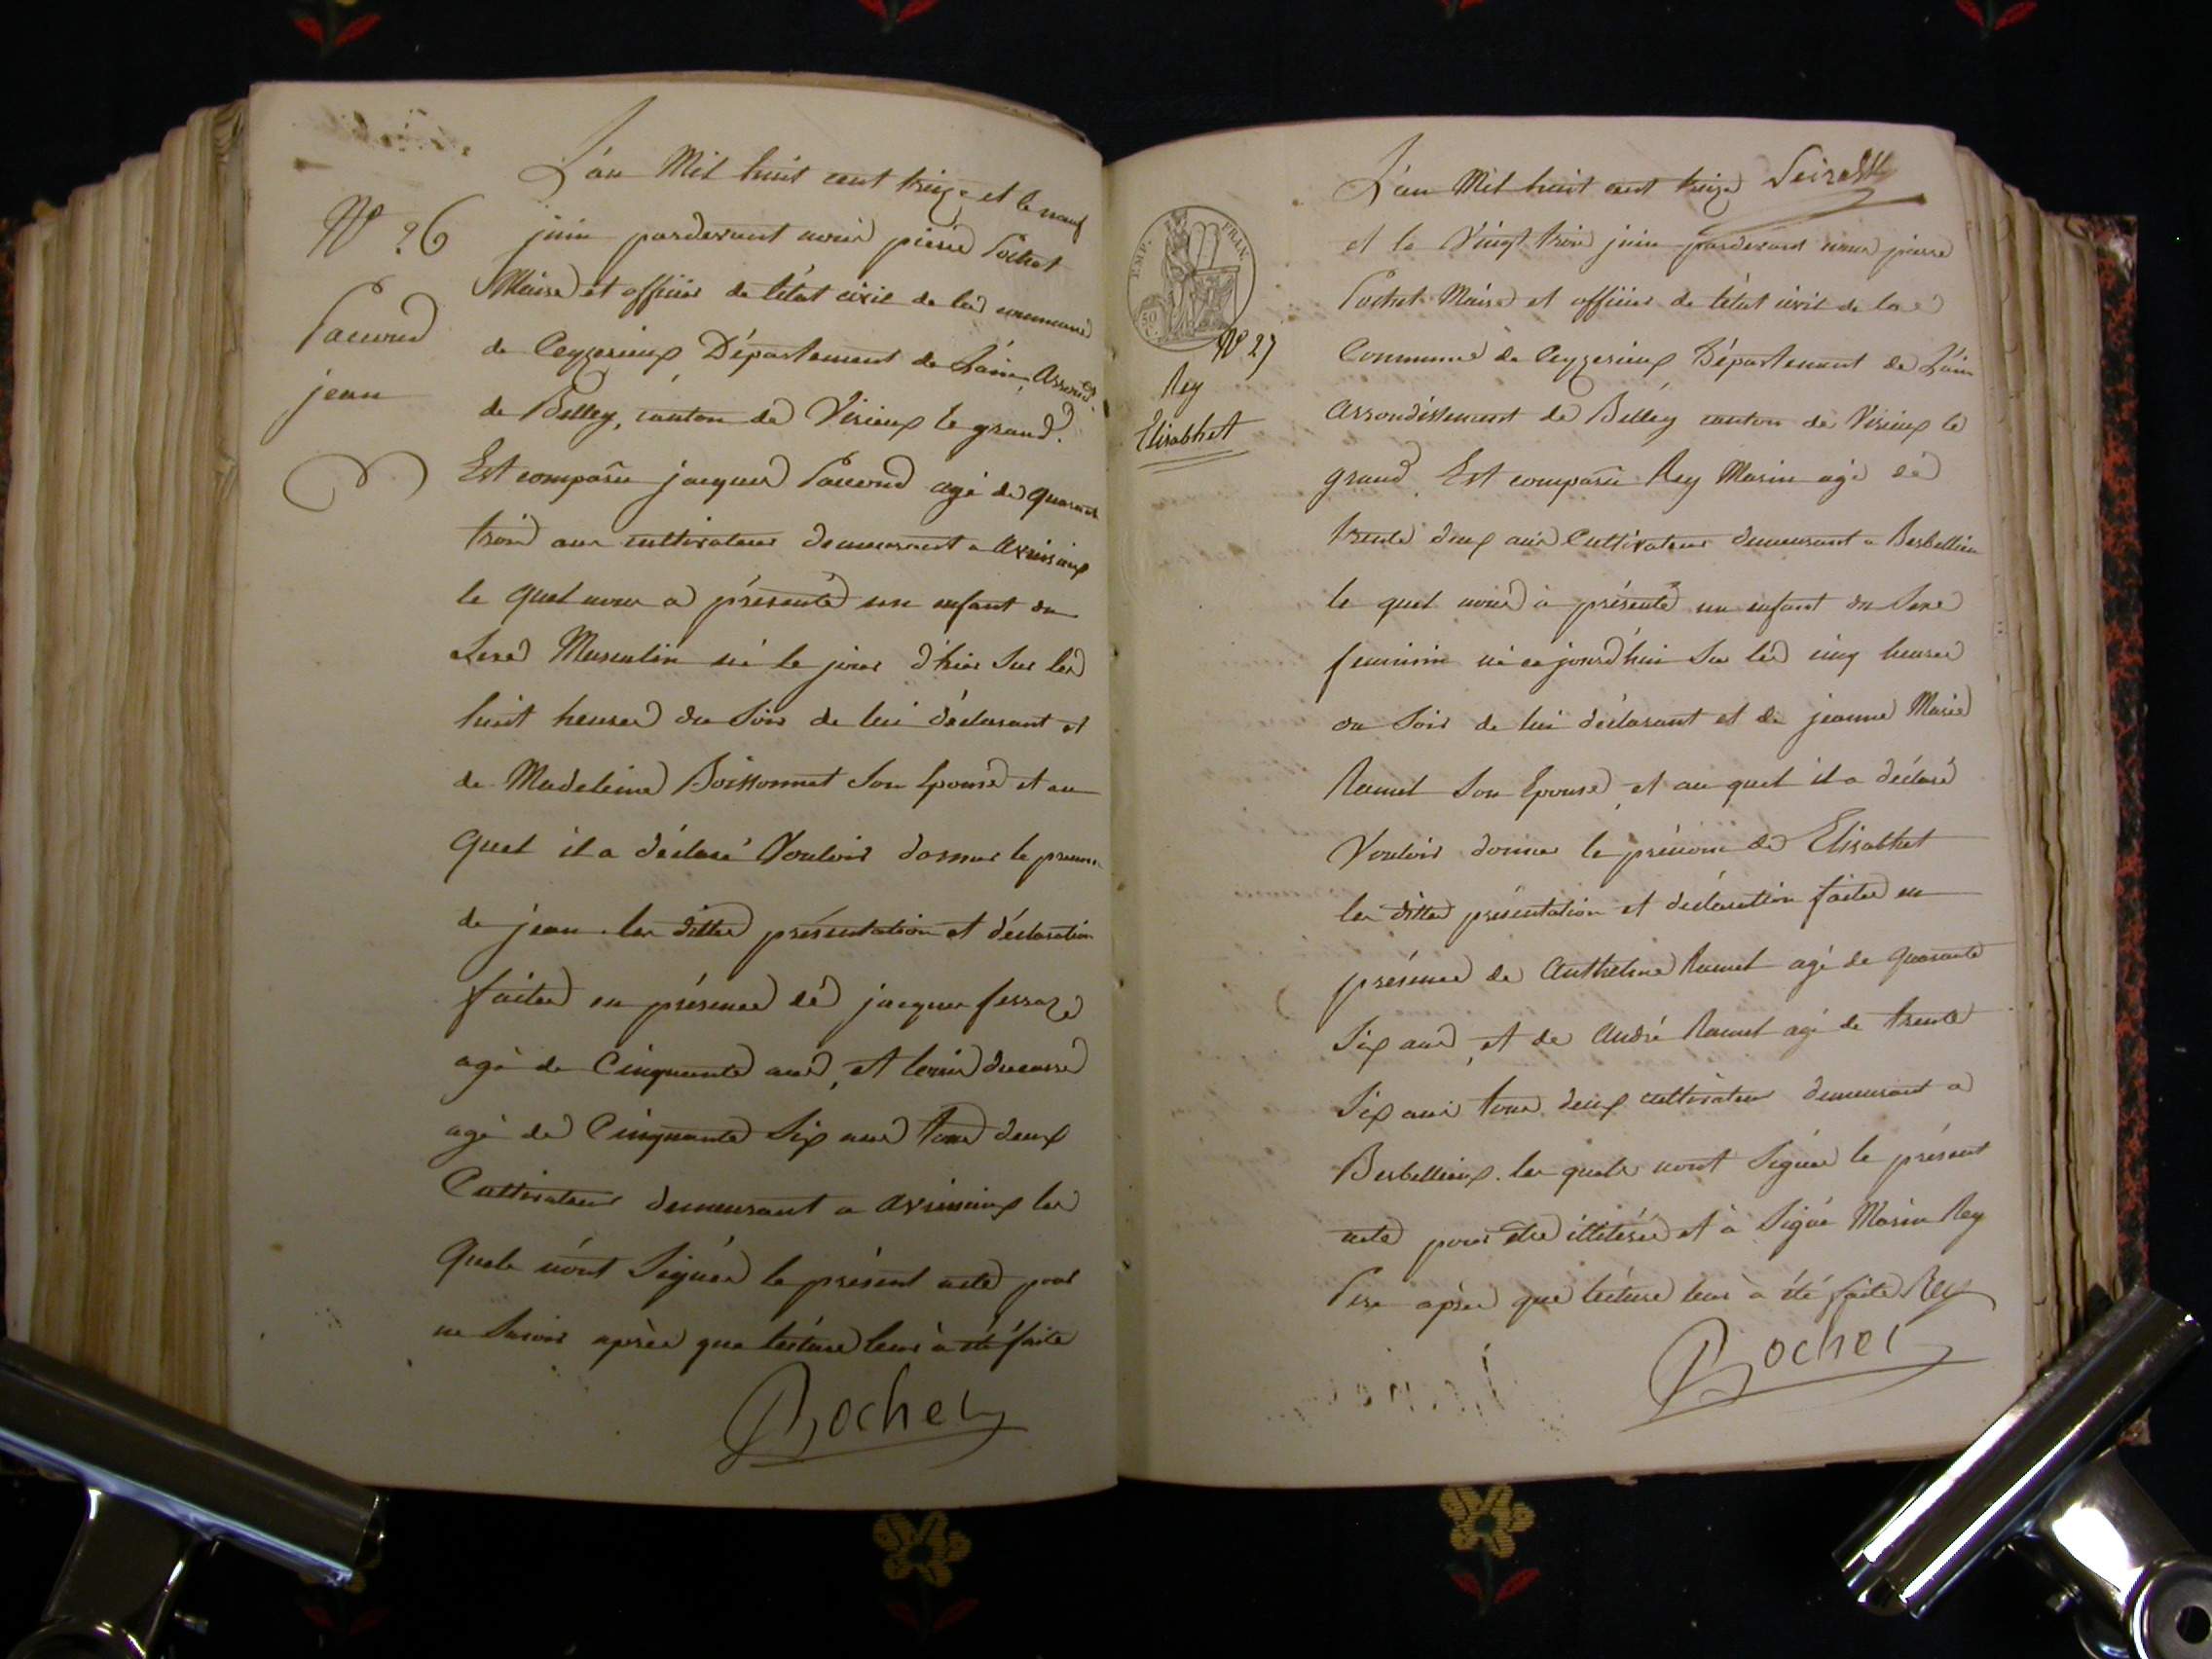 L'an Mil huit cent treize et le neuf
N° 26
juin pardevant nous pierre Pochet
Maire et officier de létat civil de la commune
de Ceyzerieux Département de Lain, Arrond.
Paccoud
jean
de Belley, canton de Virieux le grand.
Est comparu jacques Paccoud agé de quarante
trois ans cultivateur demeurant a avrissieux
le quel nous a présenté un enfant du
Sexe Masculin né le jour d'hier Sur les
huit heures du Soir de lui déclarant et
de Madeleine Boissonnet Son Epouse et au
quel il a déclaré Vouloir donner le prenom
de jean. les dittes présentation et déclaration
faites en présence de jacques ferraz
agé de Cinquante ans, et
agé de Cinquante Six ans tous deux
Cultivateur demeurant a les
quels n'ont Signés le présent acte pour
ne Savoir après que lecture leur à été faite
Pochet
L'an Mil huit cent treize
et le Vingt trois juin pardevant nous pierre
Pochet Maire et officier de l'état civil de la
EMP. FRAN.
50 C.
N° 27
Commune de Ceyzerieux Département de L'ain
Rey
Elisabhet
arrondissement de Belley canton de Virieux le
grand. Est comparu Rey Marin agé de
trente deux ans Cultivateur demeurant a
le quel nous à présenté un enfant du Sexe
feminin né cejourd'hui Sur les cinq heures
du Soir de lui déclarant et de jeanne Marie
Ramel Son Epouse, et au quel il a déclaré
Vouloir donner le prénom de Elisabhet
les dittes présentation et déclaration faites en
présence de Anthelme Ramel agé de quarante
Six ans, et de André Ramel agé de trente
Six ans tous deux cultivateur demeurant a
Berbellieux. les quels n'ont Signés le présent
acte pour etre illetérés et à Signé Marin Rey
Pere après que lecture leur à été faite Rey
Pochet